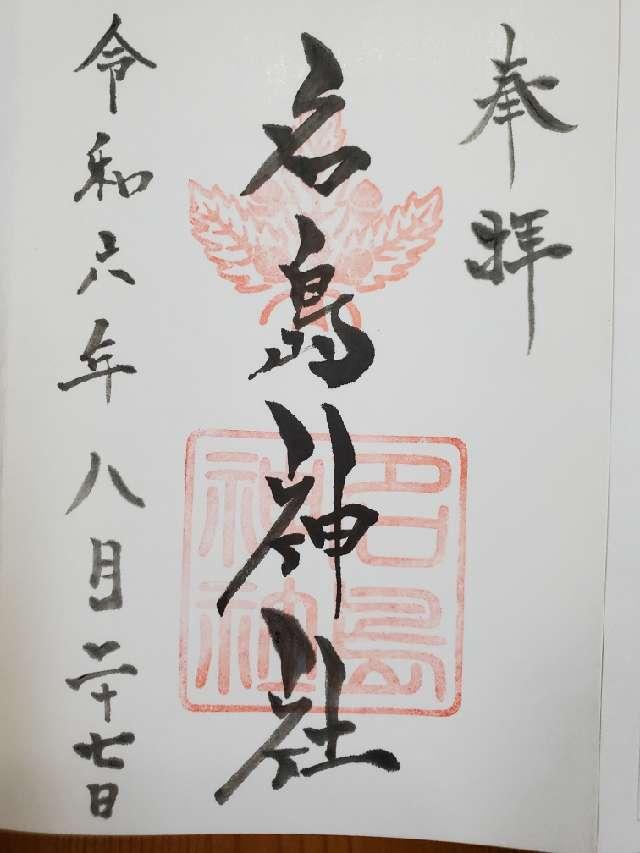 奉拝
名島神社
名島神社
令和六年八月二十七日